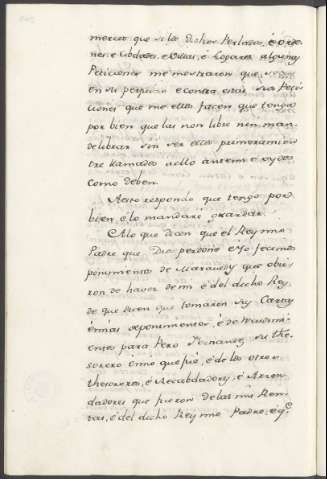 merced que si los dichos Perlados, é orde-
nes, é cibdades, é Villas, é logares algunas
Peticiones me mostraron que son
en su perjuicio é contra estas sus Peti-
ciones que me ellos facen que tenga
por bien que las non libre nin man-
de librar sin ser ellos primeramen-
tre llamados aello ante mi é oydos
como deben.
A esto respondo que tengo por
bien é lo mandaré guardar.
Alo que dicen que el Rey mio
Padre que Dios perdone é Yo fecimos
ponimientos de Maravedis que obie-
ron de haver de mi é del dicho Rey
de que dicen que tomaron sus Cartas
é mias de ponimientos, é de
para Pero Fernandez su the-
sorero é mio que fue, é de los otros
thesoreros, é Recabdadores, é Arren-
dadores que fueron de las mis Ren-
tas, é del dicho Rey mio Padre, é q.e